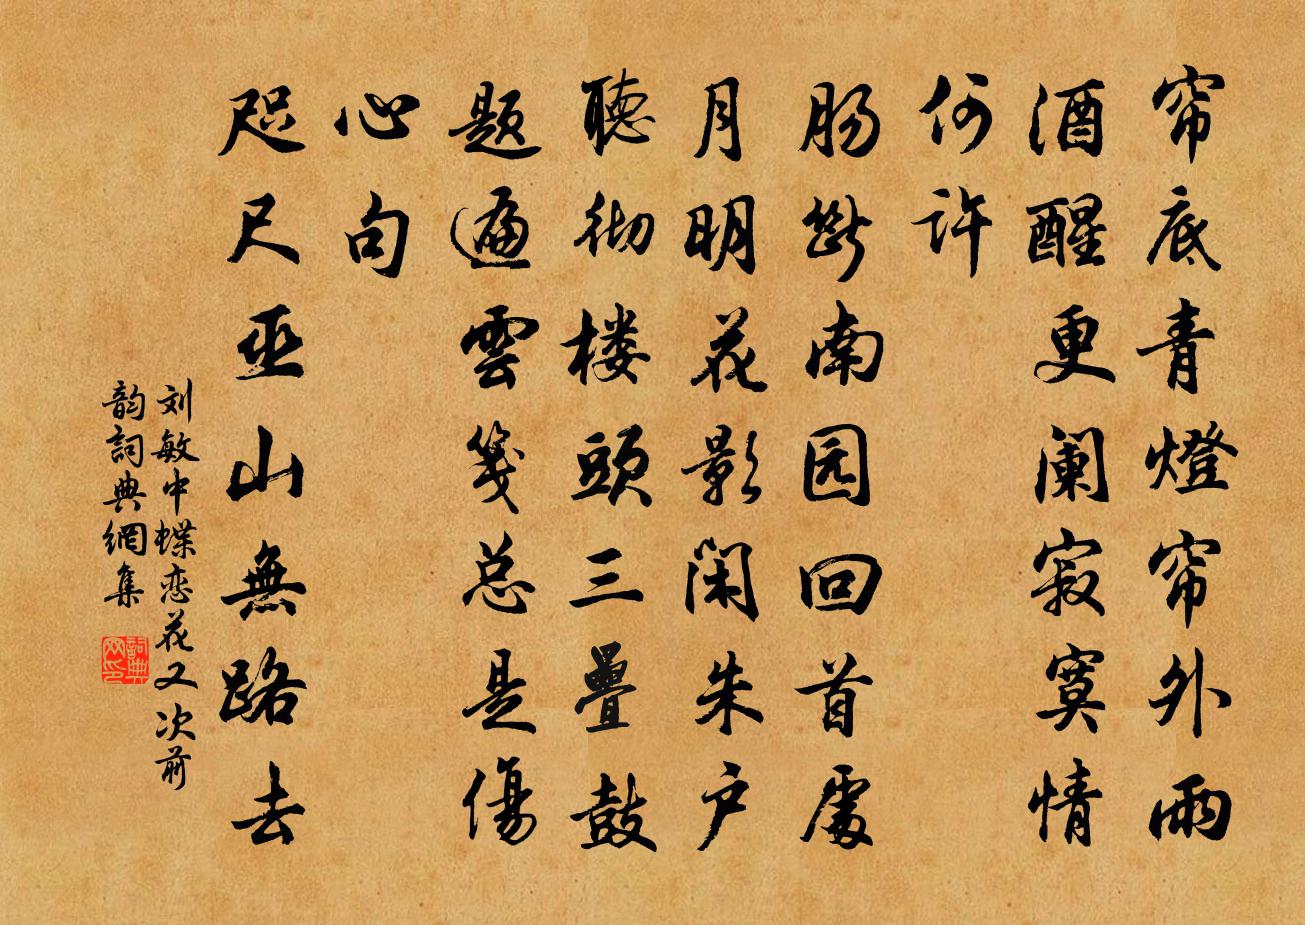 帘底青燈帘外雨
酒醒更阑寂寞情
何许
肠斷南园回首處
月明花影闲朱户
聽彻楼頭三疊鼓
题遍雲笺总是傷
心句
咫尺巫山無路去
刘敏中蝶恋花又次前
韵詞典網集
詞典
网印